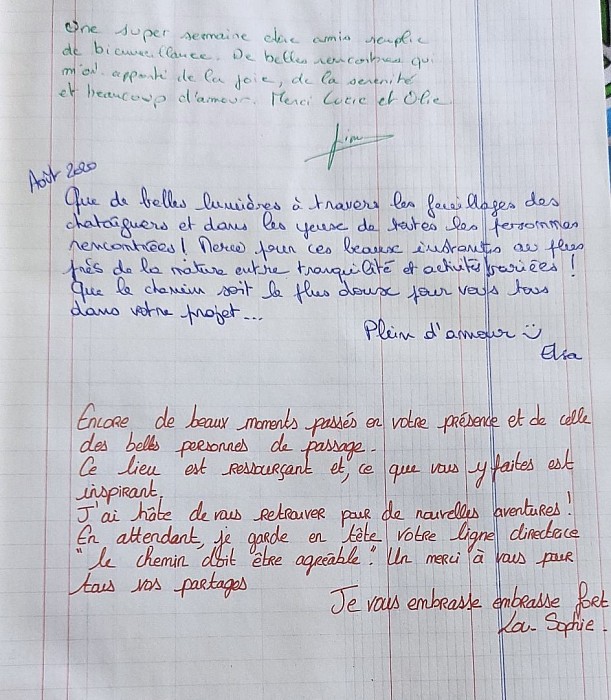 Une super semaine chez amis remplie
de bienveillance. De belles rencontres qui
m'ont apporté de la joie, de la serenité
et beaucoup d'amour. Merci Lucie et Olie.
Août 2020
Que de belles lumières à travers les feuillages des
chataîgners et dans les yeux de toutes les personnes
rencontrées ! Merci pour ces beaux instants au plus
près de la nature entre tranquilité et activités variées !
Que le chemin soit le plus doux pour vous tous
dans votre projet...
Plein d'amour
Elsa
Encore de beaux moments passés en votre présence et de celle
des belles personnes de passage.
Ce lieu est ressourçant et, ce que vous y faites est
inspirant.
J'ai hâte de vous retrouver pour de nouvelles aventures !
En attendant, je garde en tête votre ligne directrice
"le chemin doit être agréable". Un merci à vous pour
tous vos partages
Je vous embrasse embrasse fort
Lou-Sophie.